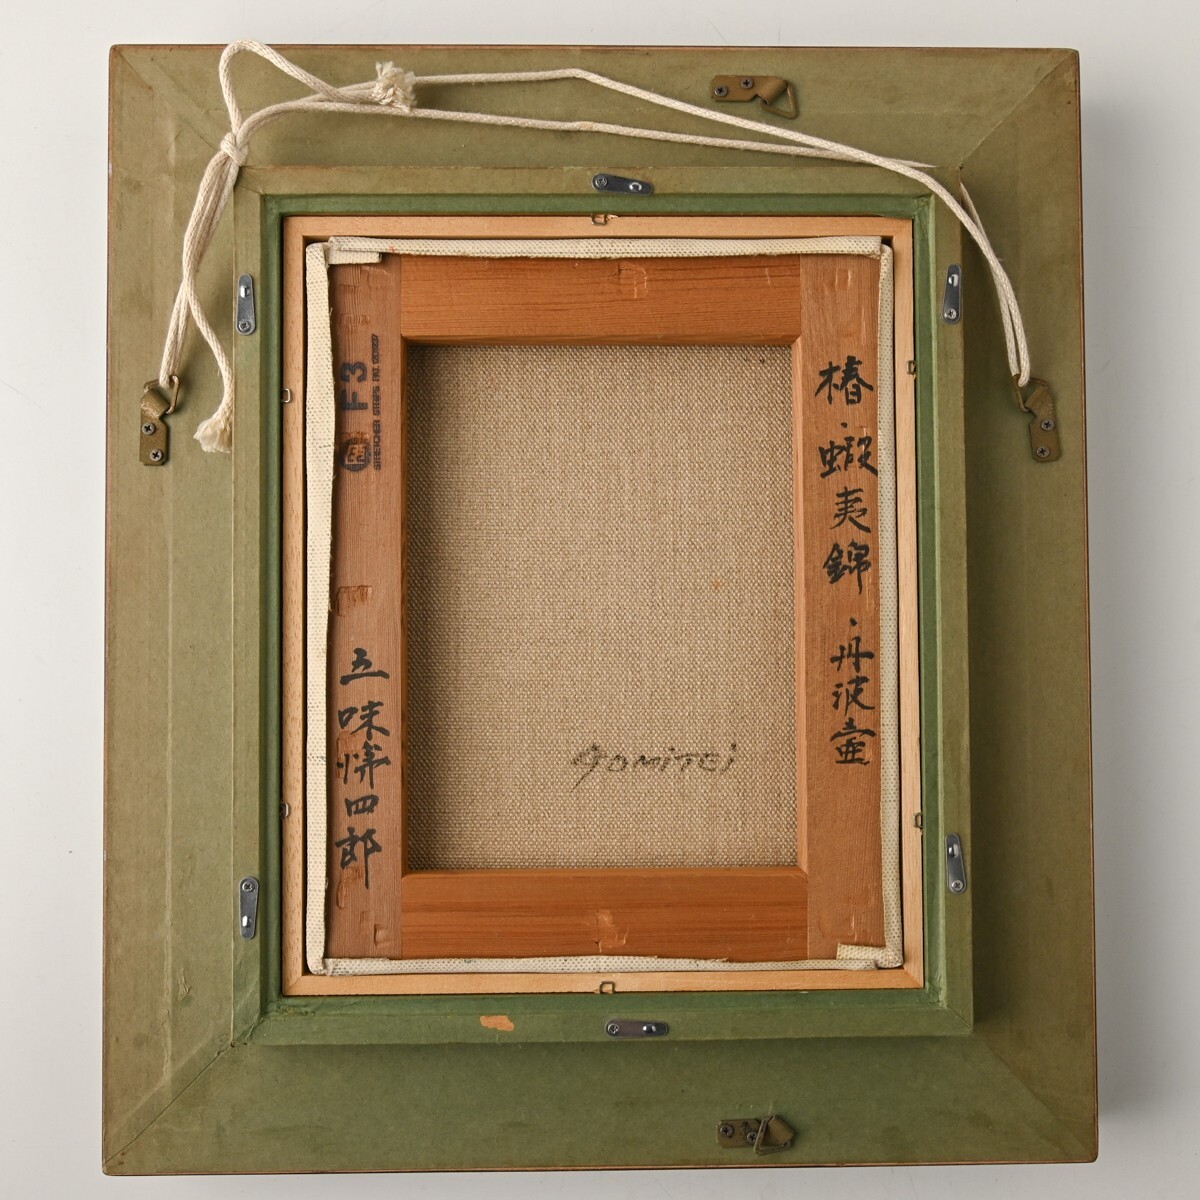 椿・蝦夷錦・丹波壷
五味悌四郎
gomitei
F3